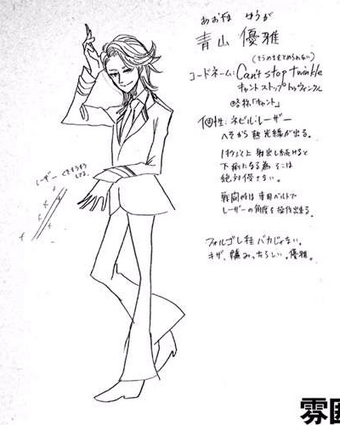 あおやま ゆうが
青山 優雅
(きらめきをとめられない)
コードネーム:Can't stop twinkle
キャントストップトゥインクル
略称「キャント」
個性:ネビルレーザー
へそから 光線が出る。
1秒以上 射出し続けると
下痢になる為 そこは
絶対
戦闘時は 専用ベルトで
レーザーの角度を 操作出来る。
バカじゃない。
キザ、 優雅。
レーザー くるきらする
雰囲